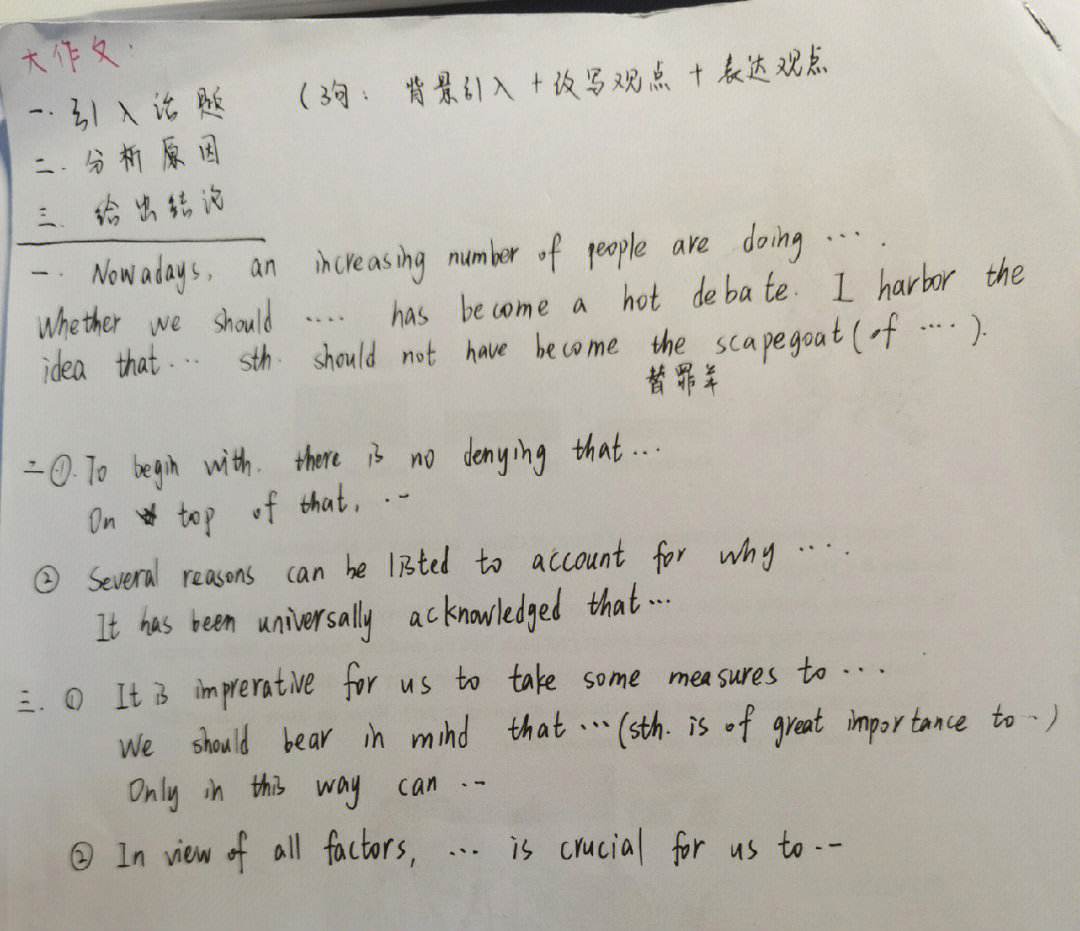 大作文:
一. 引入话题 (3句: 背景引入 + 改写观点 + 表达观点
二. 分析原因
三. 给出结论
一. Nowadays, an increasing number of people are doing ....
Whether we should .... has become a hot debate. I harbor the
idea that... sth. should not have become the scapegoat (of ....).
替罪羊
二①. To begin with. there is no denying that...
On top of that, ...
② Several reasons can be listed to account for why ....
It has been universally acknowledged that...
三. ① It is imprerative for us to take some measures to ...
We should bear in mind that ... (sth. is of great importance to ..)
Only in this way can ...
② In view of all factors, ... is crucial for us to ...